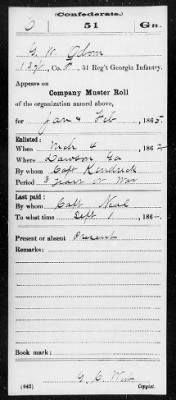 (Confederate.)
51 Ga.
G. W. Odom
Co. , 51 Reg't Georgia Infantry.
Appears on
Company Muster Roll
of the organization named above,
for Jan & Feb , 1865
Enlisted:
When Mch 4 , 186
Where Dawson Ga
By whom Capt Kendrick
Period 3 years or War
Last paid:
By whom Capt Neal
To what time Sept 1 , 186
Present or absent Present
Remarks:
Book mark:
(642) G. C.
Copyist.